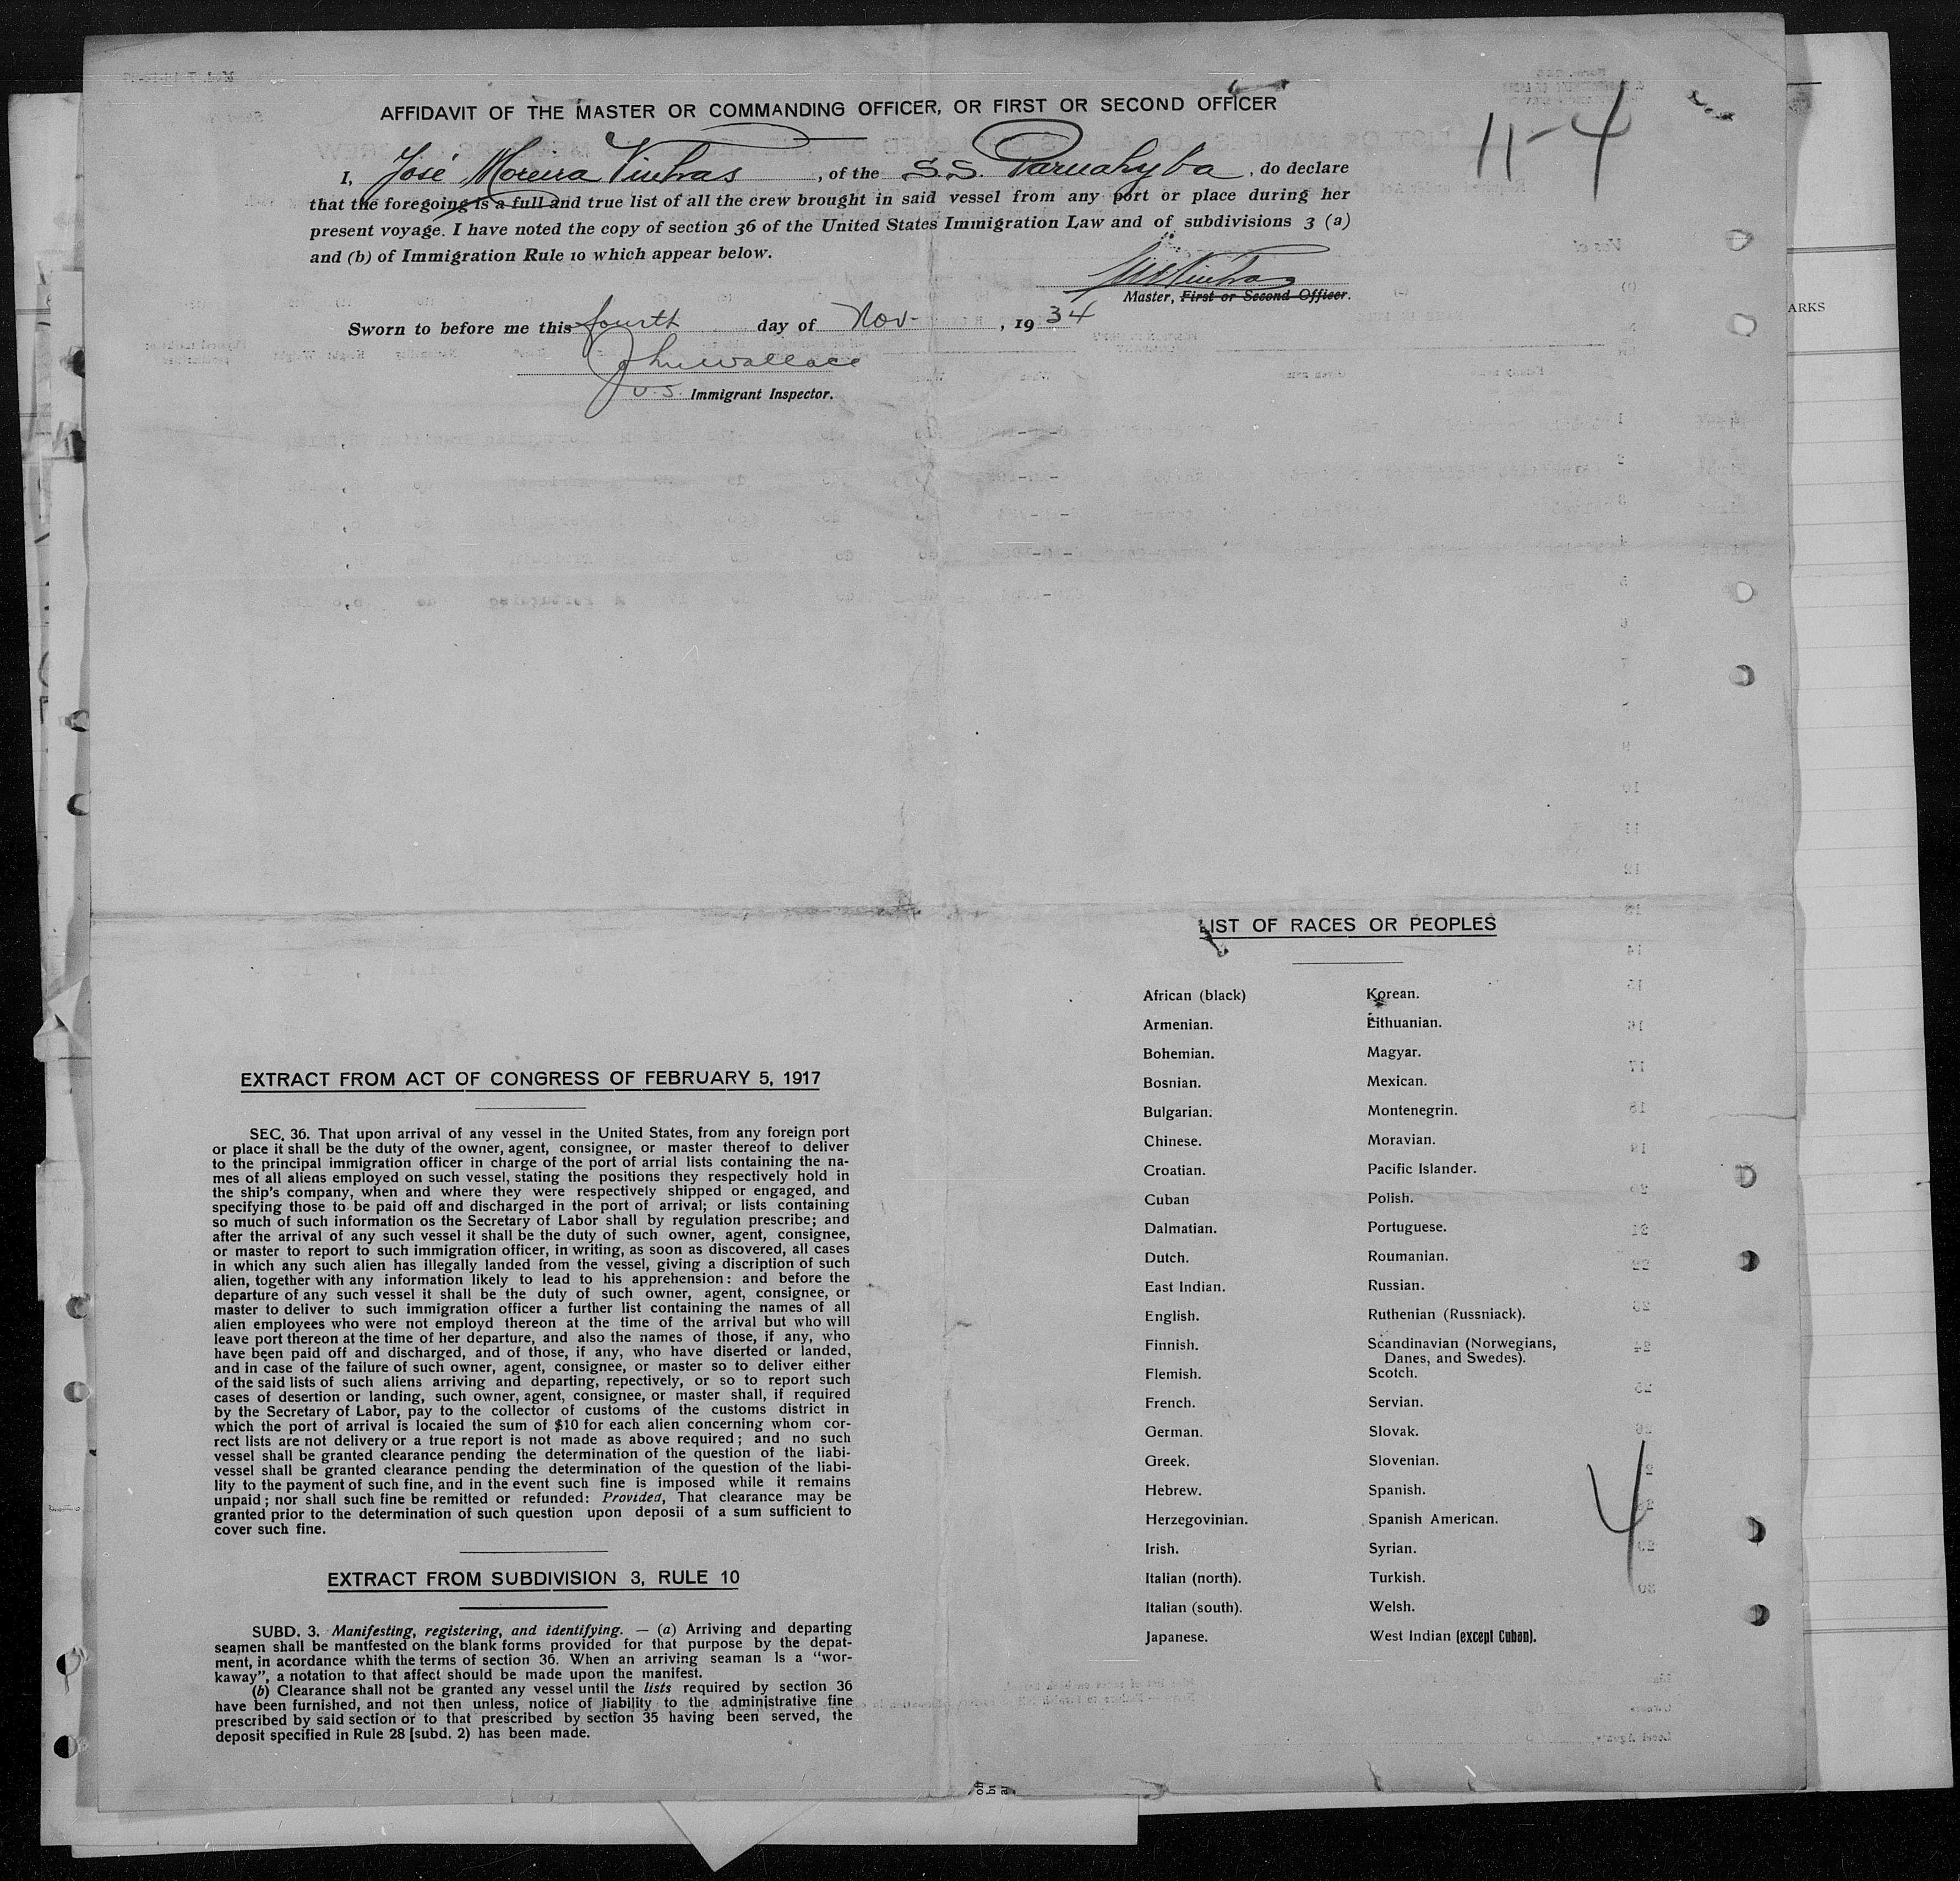 AFFIDAVIT OF THE MASTER OR COMMANDING OFFICER, OR FIRST OR SECOND OFFICER
11-4
I, José Moreira Vinhas, of the S.S. Parnahyba, do declare
that the foregoing is a full and true list of all the crew brought in said vessel from any port or place during her
present voyage. I have noted the copy of section 36 of the United States Immigration Law and of subdivisions 3 (a)
and (b) of Immigration Rule 10 which appear below.
Master, First or Second Officer.
Sworn to before me this fourth day of Nov. , 1934
John Wallace
U.S. Immigrant Inspector.
ARKS
EXTRACT FROM ACT OF CONGRESS OF FEBRUARY 5, 1917
SEC. 36. That upon arrival of any vessel in the United States, from any foreign port
or place it shall be the duty of the owner, agent, consignee, or master thereof to deliver
to the principal immigration officer in charge of the port of arrial lists containing the na-
mes of all aliens employed on such vessel, stating the positions they respectively hold in
the ship's company, when and where they were respectively shipped or engaged, and
specifying those to be paid off and discharged in the port of arrival; or lists containing
so much of such information os the Secretary of Labor shall by regulation prescribe; and
after the arrival of any such vessel it shall be the duty of such owner, agent, consignee,
or master to report to such immigration officer, in writing, as soon as discovered, all cases
in which any such alien has illegally landed from the vessel, giving a discription of such
alien, together with any information likely to lead to his apprehension: and before the
departure of any such vessel it shall be the duty of such owner, agent, consignee, or
master to deliver to such immigration officer a further list containing the names of all
alien employees who were not employd thereon at the time of the arrival but who will
leave port thereon at the time of her departure, and also the names of those, if any, who
have been paid off and discharged, and of those, if any, who have diserted or landed,
and in case of the failure of such owner, agent, consignee, or master so to deliver either
of the said lists of such aliens arriving and departing, repectively, or so to report such
cases of desertion or landing, such owner, agent, consignee, or master shall, if required
by the Secretary of Labor, pay to the collector of customs of the customs district in
which the port of arrival is locaied the sum of $10 for each alien concerning whom cor-
rect lists are not delivery or a true report is not made as above required; and no such
vessel shall be granted clearance pending the determination of the question of the liabi-
vessel shall be granted clearance pending the determination of the question of the liabi-
lity to the payment of such fine, and in the event such fine is imposed while it remains
unpaid; nor shall such fine be remitted or refunded: Provided, That clearance may be
granted prior to the determination of such question upon deposii of a sum sufficient to
cover such fine.
EXTRACT FROM SUBDIVISION 3, RULE 10
SUBD. 3. Manifesting, registering, and identifying. — (a) Arriving and departing
seamen shall be mantfested on the blank forms provided for that purpose by the depat-
ment, in acordance whith the terms of section 36. When an arriving seaman is a "wor-
kaway", a notation to that affect should be made upon the manifest.
(b) Clearance shall not be granted any vessel until the lists required by section 36
have been furnished, and not then unless, notice of liability to the administrative fine
prescribed by said section or to that prescribed by section 35 having been served, the
deposit specified in Rule 28 [subd. 2) has been made.
LIST OF RACES OR PEOPLES
African (black)
Armenian.
Bohemian.
Bosnian.
Bulgarian.
Chinese.
Croatian.
Cuban
Dalmatian.
Dutch.
East Indian.
English.
Finnish.
Flemish.
French.
German.
Greek.
Hebrew.
Herzegovinian.
Irish.
Italian (north).
Italian (south).
Japanese.
Korean.
Lithuanian.
Magyar.
Mexican.
Montenegrin.
Moravian.
Pacific Islander.
Polish.
Portuguese.
Roumanian.
Russian.
Ruthenian (Russniack).
Scandinavian (Norwegians,
Danes, and Swedes).
Scotch.
Servian.
Slovak.
Slovenian.
Spanish.
Spanish American.
Syrian.
Turkish.
Welsh.
West Indian (except Cuban).
4